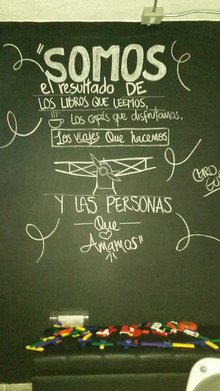 "SOMOS
el resultado DE
LOS LIBROS QUE LEEMOS,
LOS CAFÉS QUE DISFRUTAMOS,
Los viajes Que hacemos
Y LAS PERSONAS
Que
Amamos"